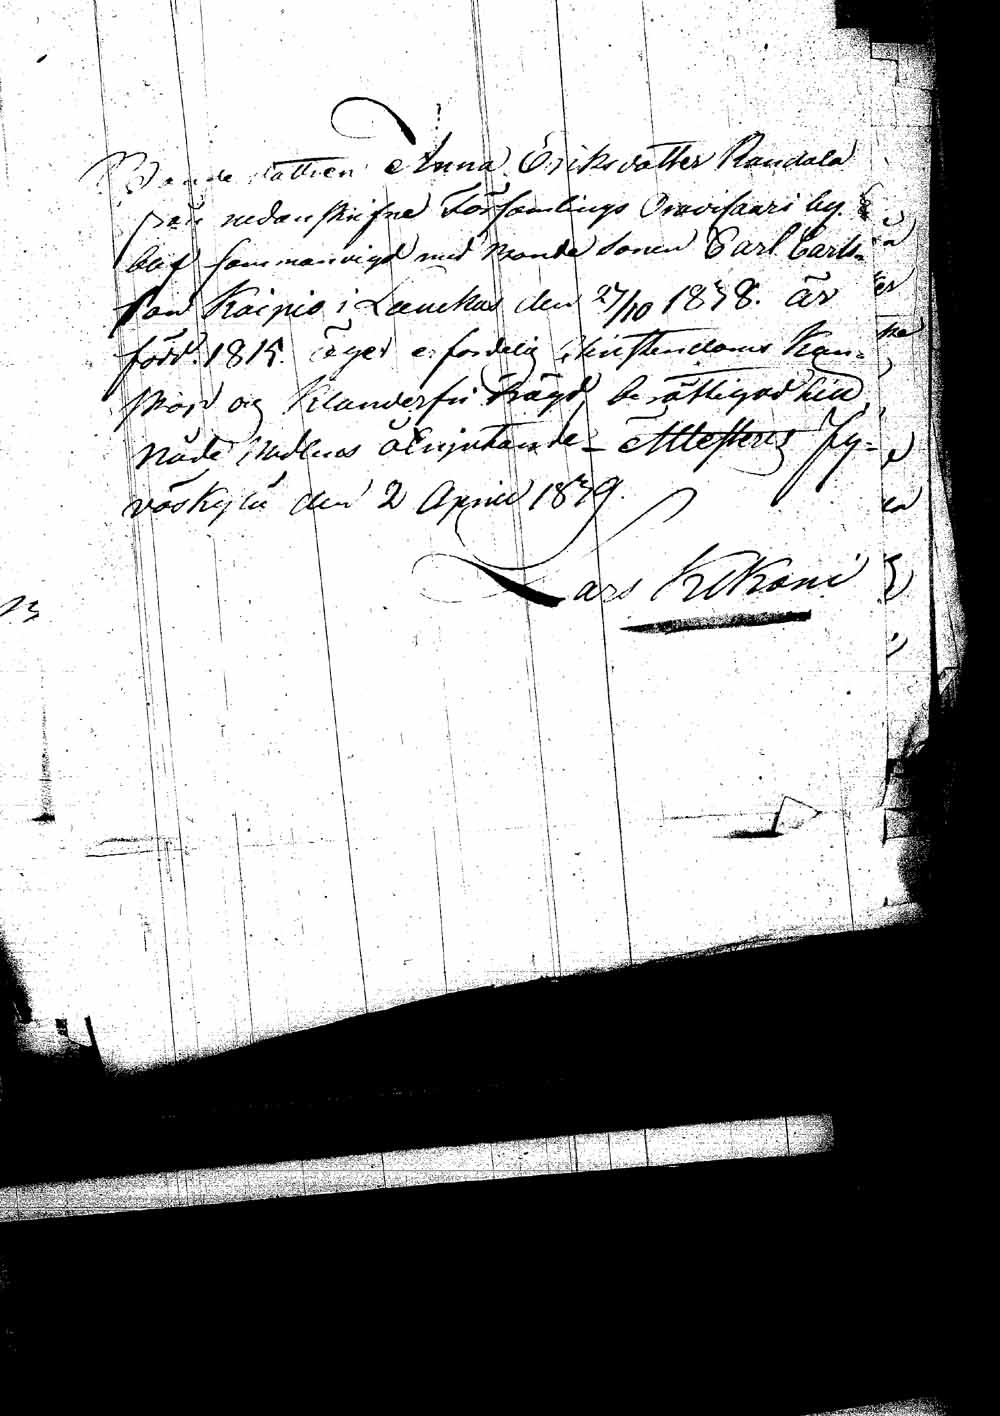 Bonde dottren Anna Ericksdotter Randala
från nedanskrifne Församlings Oravisaari by.
blef sammanvigd med Bonde Sonen Carl Carls-
son Kaipio i Laukas den 27/10 1838. är
född. 1815. äger erforderlig Christendoms Kun-
skap og Klanderfri frägd, berättigad till
Nåde Medlens åtnjutande – Attesteras Jy-
väskylä den 2 April 1839.
Lars Kekoni